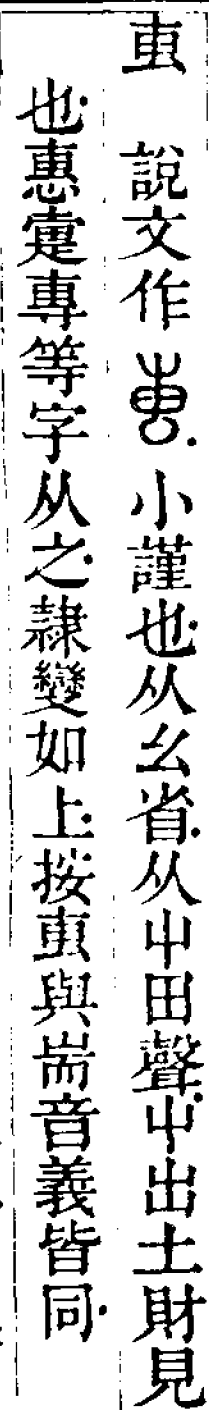 叀 說文作叀小謹也从幺省从屮田聲屮出土財見
也惠疐專等字从之隷變如上按叀與耑音義皆同